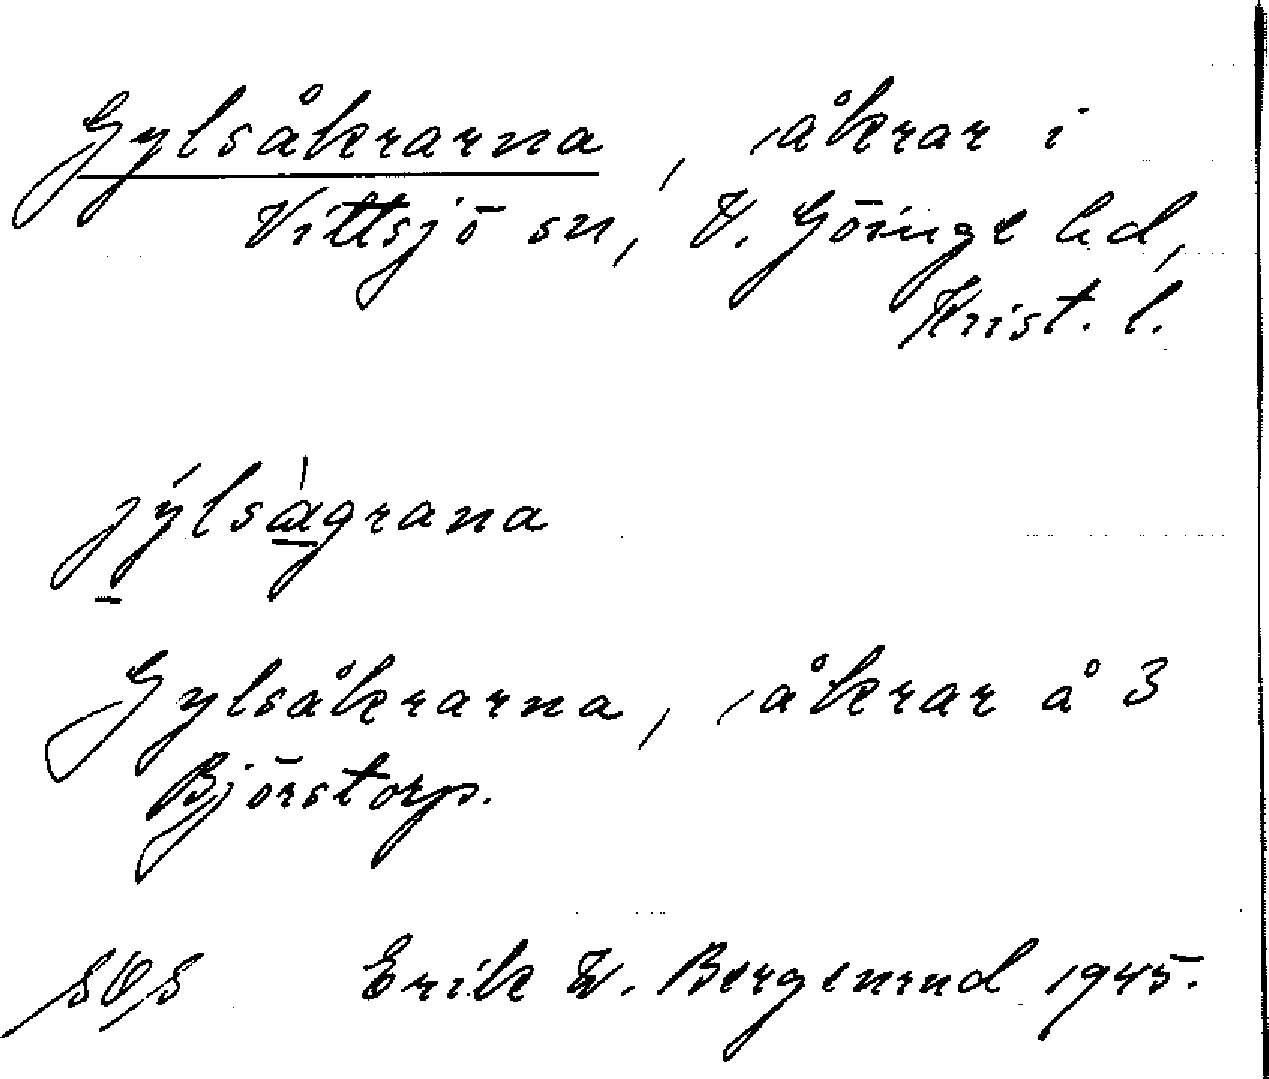 Gylsåkrarna, åkrar i
Vittsjö sn, V. Göinge hd,
Krist. l.
jýlsàgrana
Gylsåkrarna, åkrar å 3
Björstorp.
Erik W. Berglund 1945.